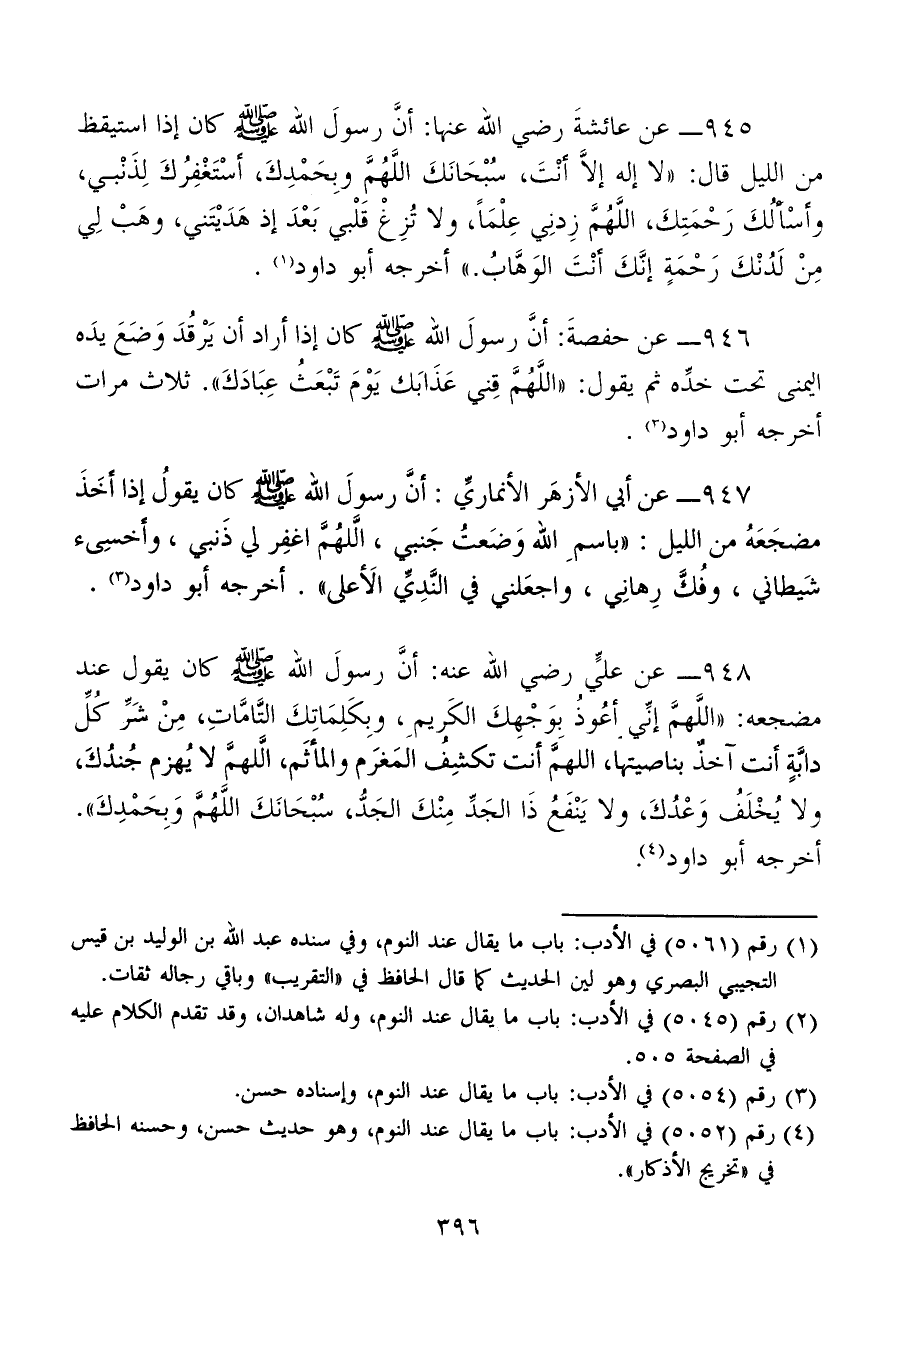 ٩٤٥ــ عن عائشةَ رضي الله عنها: أنَّ رسولَ الله ﷺ كان إذا استيقظ
من الليل قال: «لا إله إلاَّ أنْتَ، سُبْحَانَكَ اللَّهُمَّ وبِحَمْدِكَ، أسْتَغْفِرُكَ لِذَنْبـي،
وأسْألُكَ رَحْمَتِكَ، اللَّهُمَّ زِدنِي عِلْمَاً، ولا تُزِغْ قَلْبي بَعْدَ إذ هَدَيْتَني، وهَبْ لِي
مِنْ لَدُنْكَ رَحْمَةٍ إنَّكَ أنْتَ الوَهَّابُ.» أخرجه أبو داود(١) .
٩٤٦ــ عن حفصةَ: أنَّ رسولَ الله ﷺ كان إذا أراد أن يَرْقُدَ وَضَعَ يدَه
اليمنى تحت خدِّه ثم يقول: «اللَّهُمَّ قِنِي عَذَابَك يَوْمَ تَبْعَثُ عِبَادَكَ». ثلاث مرات
أخرجه أبو داود(٢) .
٩٤٧ــ عن أبي الأزهَر الأنماريِّ : أنَّ رسولَ الله ﷺ كان يقولُ إذا أخَذَ
مضجَعَهُ من الليل : «باسمِ الله وَضَعتُ جَنبي ، الَّلهُمَّ اغفِر لي ذَنبي ، وأخسِىء
شَيطاني ، وفُكَّ رِهانِي ، واجعَلني في النَّدِيِّ الَأعلى» . أخرجه أبو داود(٣) .
٩٤٨ــ عن عليٍّ رضي الله عنه: أنَّ رسولَ الله ﷺ كان يقول عند
مضجعه: «اللَّهمَّ إنِّي أعُوذُ بِوَجْهِكَ الكَرِيمِ، وبِكَلِمَاتِكَ التَّامَّاتِ، مِنْ شَرِّ كُلِّ
دابَّةٍ أنت آخذٌ بناصيتها، اللهمَّ أنت تكشِفُ المَغرَم والمأثَم، اللَّهمَّ لا يُهزم جُندُكَ،
ولا يُخْلَفُ وَعْدُكَ، ولا يَنْفَعُ ذَا الجَدِّ مِنْكَ الجَدُّ، سُبْحَانَكَ اللَّهُمَّ وَبِحَمْدِكَ».
أخرجه أبو داود(٤).
(١) رقم (٥٠٦١) في الأدب: باب ما يقال عند النوم، وفي سنده عبد الله بن الوليد بن قيس
التجيبي البصري وهو لين الحديث كما قال الحافظ في «التقريب» وباقي رجاله ثقات.
(٢) رقم (٥٠٤٥) في الأدب: باب ما يقال عند النوم، وله شاهدان، وقد تقدم الكلام عليه
في الصفحة ٥٠٥.
(٣) رقم (٥٠٥٤) في الأدب: باب ما يقال عند النوم، وإسناده حسن.
(٤) رقم (٥٠٥٢) في الأدب: باب ما يقال عند النوم، وهو حديث حسن، وحسنه الحافظ
في «تخريج الأذكار».
٣٩٦